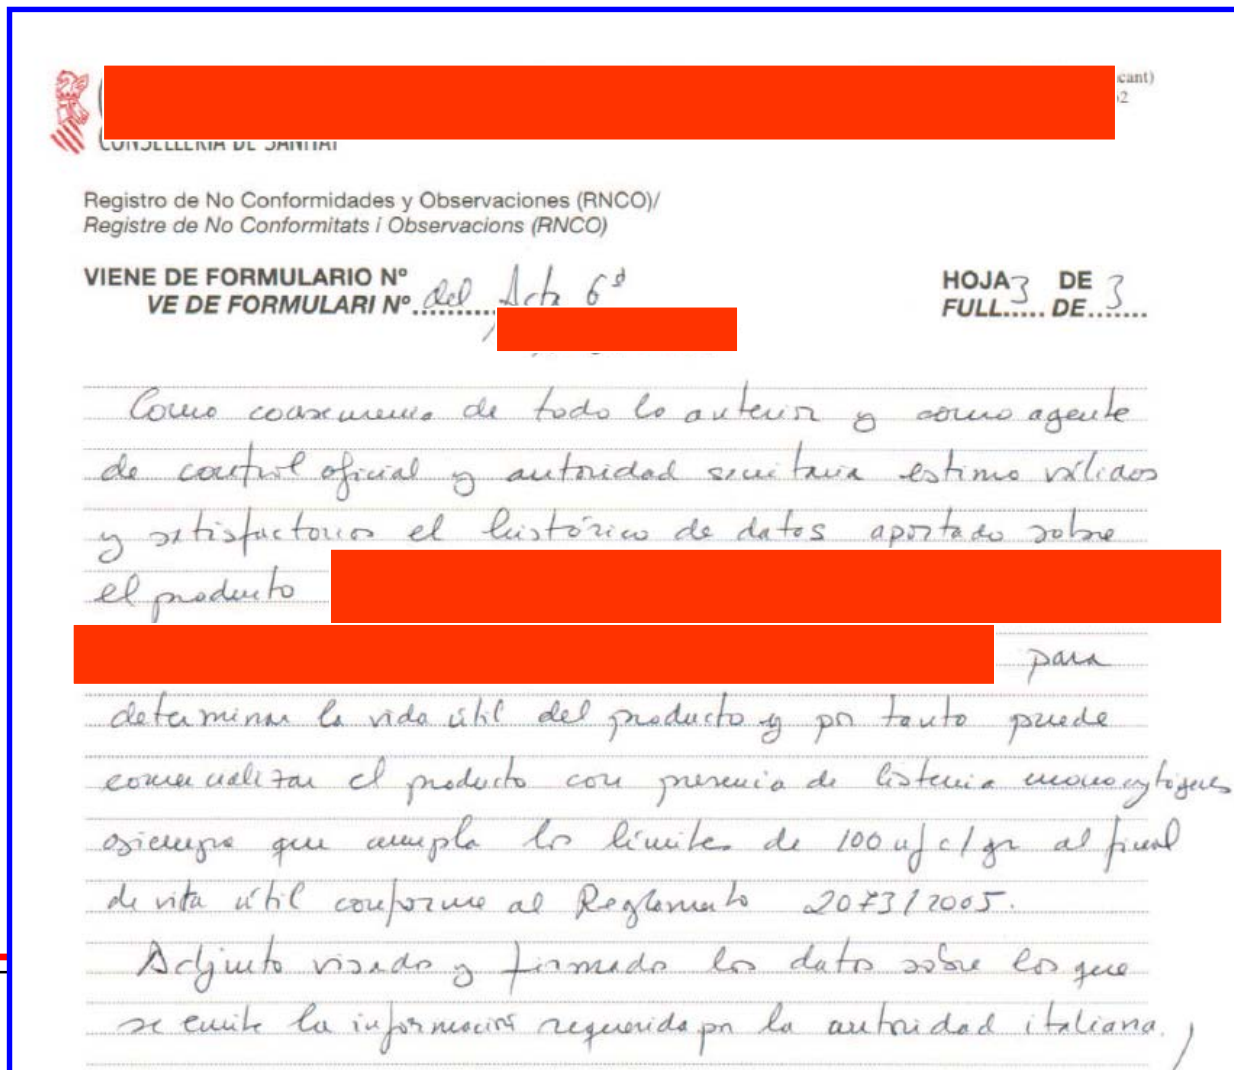 cant)
2
CONSELLERIA DE SANITAT
Registro de No Conformidades y Observaciones (RNCO)/
Registre de No Conformitats i Observacions (RNCO)
VIENE DE FORMULARIO Nº
VE DE FORMULARI Nº del Acta 6ª
HOJA 3 DE 3
FULL..... DE.......
Como consecuencia de todo lo anterior y como agente
de control oficial y autoridad sanitaria estimo válidos
y satisfactorios el histórico de datos aportado sobre
el producto
para
determinar la vida útil del producto y por tanto puede
comercializar el producto con presencia de listeria monocytogenes
siempre que cumpla los límites de 100 ufc/gr al final
de vita útil conforme al Reglamento 2073/2005.
Adjunto visado y firmado los datos sobre los que
se emite la información requerida por la autoridad italiana.